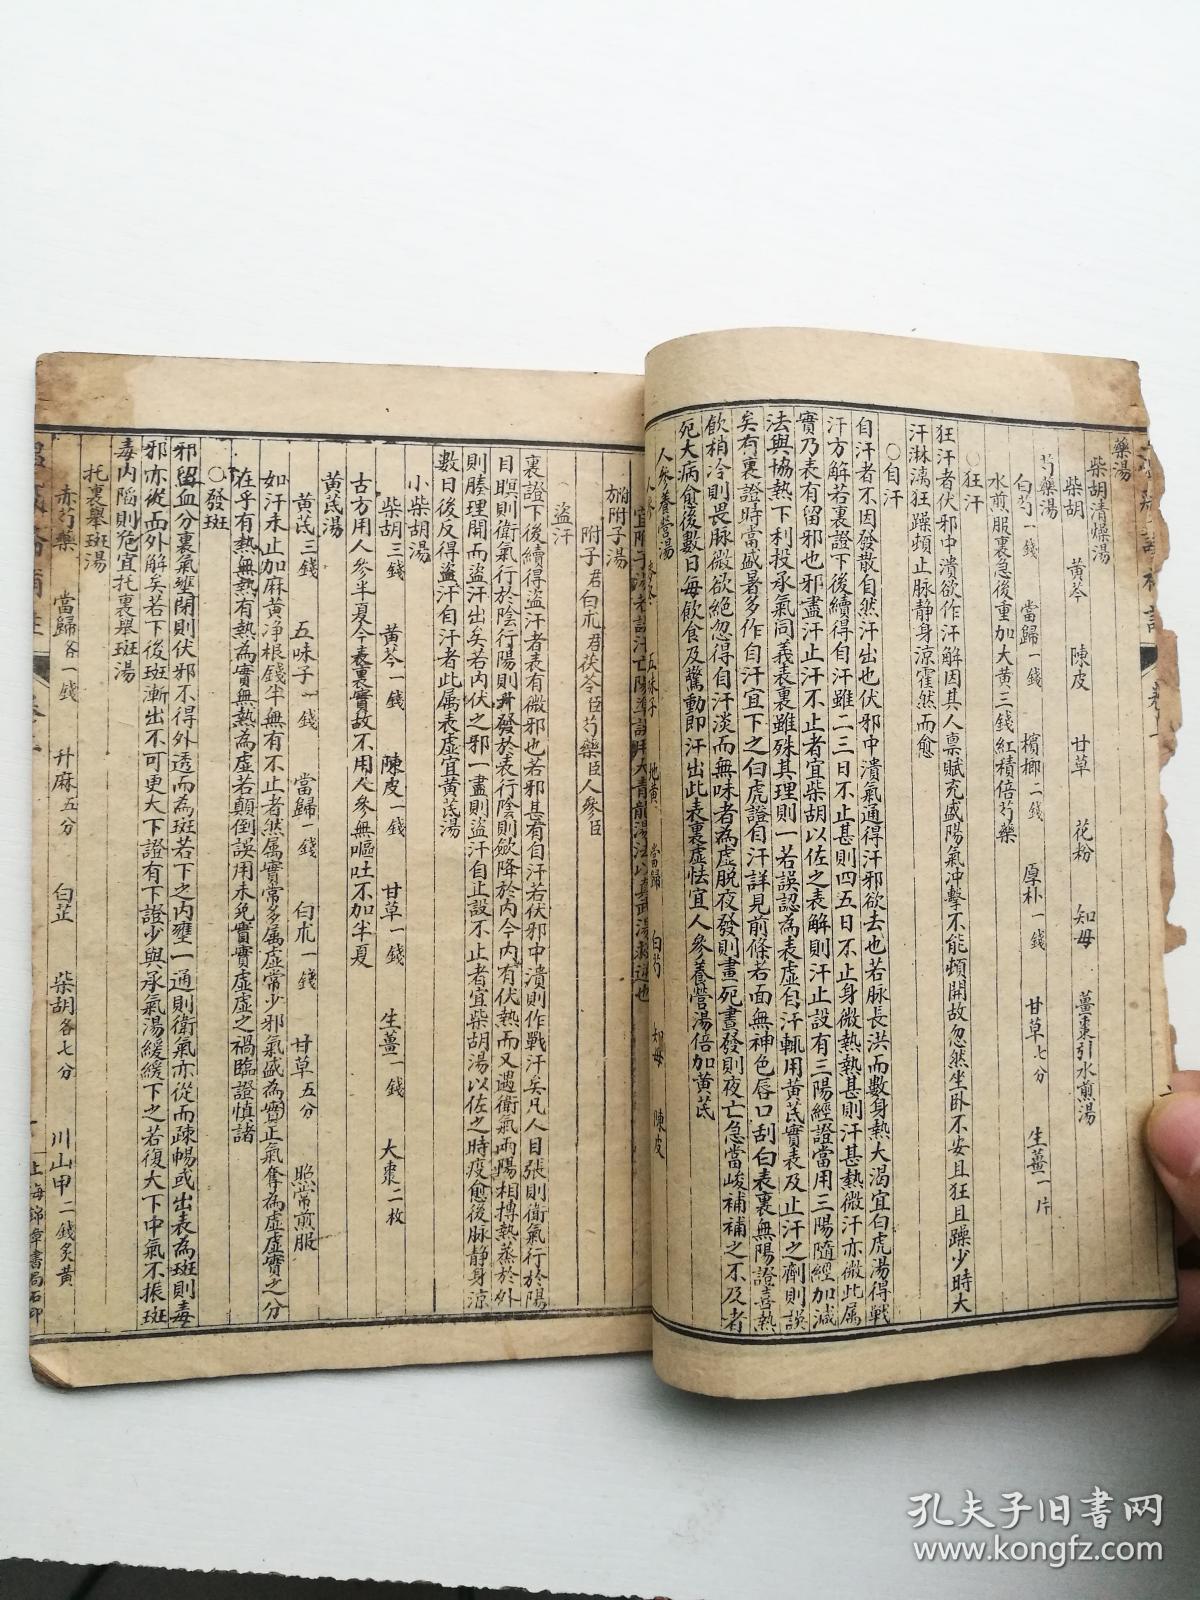 藥湯
柴胡清燥湯
柴胡 黄芩 陳皮 甘草 花粉 知母 薑棗引水煎湯
芍藥湯
白芍一錢 當歸一錢 檳榔二錢 厚朴一錢 甘草七分 生薑一片
水煎服裏急後重加大黄三錢紅積倍芍藥
狂汗
狂汗者伏邪中潰欲作汗解因其人禀賦充盛陽氣冲擊不能頓開故忽然坐卧不安且狂且躁少時大
汗淋漓狂躁頓止脉静身涼霍然而愈
〇自汗
自汗者不因發散自然汗出也伏邪中潰氣通得汗邪欲去也若脉長洪而數身熱大渴宜白虎湯得戰
汗方解若裏證下後續得自汗雖二三日不止甚則四五日不止身微熱熱甚則汗甚熱微汗亦微此属
實乃表有留邪也邪盡汗止汗不止者宜柴胡以佐之表解則汗止設有三陽經證當用三陽隨經加減
法與協熱下利投承氣同義表裏雖殊其理則一若誤認為表虛自汗輒用黄芪實表及止汗之劑則誤
矣有裏證時當盛暑多作自汗宜下之白虎證自汗詳見前條若面無神色唇口刮白表裏無陽證喜熱
飲稍冷則畏脉微欲絶忽得自汗淡而無味者為虛脱夜發則晝死晝發則夜亡急當峻補補之不及者
死大病愈後數日每飲食及驚動即汗出此表裏虛怯宜人參養營湯倍加黄芪
人參養營湯
人參 麥冬 五味子 地黄 當歸 白芍 知母 陳皮
附子湯
附子君白朮君茯苓臣芍藥臣人參臣
盜汗
裏證下後續得盜汗者表有微邪也若邪甚者自汗若伏邪中潰則作戰汗矣凡人目張則衛氣行於陽
目瞑則衛氣行於陰行陽則升發於表行陰則斂降於内今内有伏熱而又遇衛氣兩陽相摶熱蒸於外
則腠理開而盜汗出矣若内伏之邪一盡則盜汗自止設不止者宜柴胡湯以佐之時疫愈後脉静身涼
數日後反得盜汗自汗者此属表虛宜黄芪湯
小柴胡湯
柴胡三錢 黄芩一錢 陳皮一錢 甘草一錢 生薑一錢 大棗二枚
古方用人參半夏今表裏實故不用人參無嘔吐不加半夏
黄芪湯
黄芪三錢 五味子一錢 當歸一錢 白朮一錢 甘草五分 照常煎服
如汗未止加麻黄净根錢半無有不止者然属實常多属虛常少邪氣盛為實正氣奪為虛虛實之分
在乎有熱無熱有熱為實無熱為虛若顛倒誤用未免實實虛虛之禍臨證慎諸
〇發斑
邪留血分裏氣壅閉則伏邪不得外透而為斑若下之内壅一通則衛氣亦從而疎暢或出表為斑則毒
邪亦從而外解矣若下後斑漸出不可更大下證有下證少與承氣湯緩緩下之若復大下中氣不振斑
毒内陷則危宜托裏舉斑湯
托裏舉斑湯
赤芍藥 當歸各一錢 升麻五分 白芷 柴胡各七分 川山甲二錢炙黄
上海錦章書局石印
孔夫子旧书网
www.kongfz.com